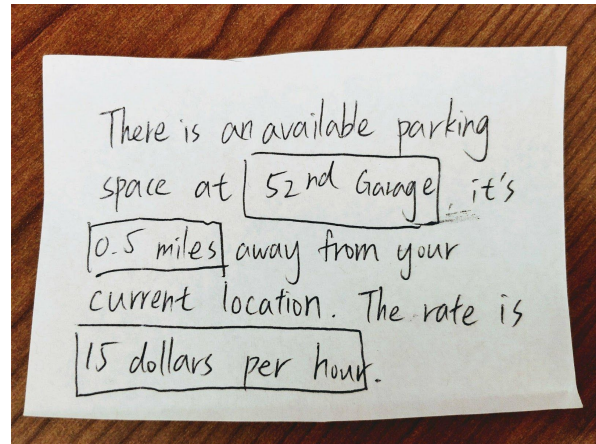 There is an available parking
space at 52nd Garage, it's
0.5 miles away from your
current location. The rate is
15 dollars per hour.